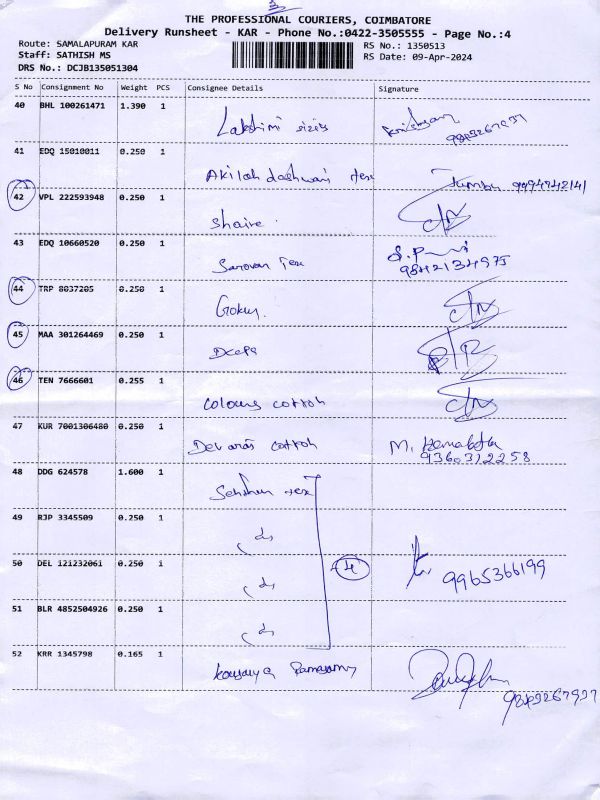 THE PROFESSIONAL COURIERS, COIMBATORE
Delivery Runsheet - KAR - Phone No.:0422-3505555 - Page No.:4
Route: SAMALAPURAM KAR RS No.: 1350513
Staff: SATHISH MS RS Date: 09-Apr-2024
DRS No.: DCJB135051304
S No Consignment No Weight PCS Consignee Details Signature
40 BHL 100261471 1.390 1
Lakshmi sizis
9843267937
41 EDQ 15010011 0.250 1
Akilandeshwari tex 9994942141
42 VPL 222593948 0.250 1
Shaire
43 EDQ 10660520 0.250 1
Sarovar Tex 9842134975
44 TRP 8037205 0.250 1
Gokul.
45 MAA 301264469 0.250 1
Deepa
46 TEN 7666601 0.255 1
Colours cotton
47 KUR 7001306480 0.250 1
Devaras cotton M.
9360312258
48 DDG 624578 1.600 1
tex
49 RJP 3345509 0.250 1
50 DEL 121232061 0.250 1
4
9965366199
51 BLR 4852504926 0.250 1
52 KRR 1345798 0.165 1
Kousalya Ramasamy